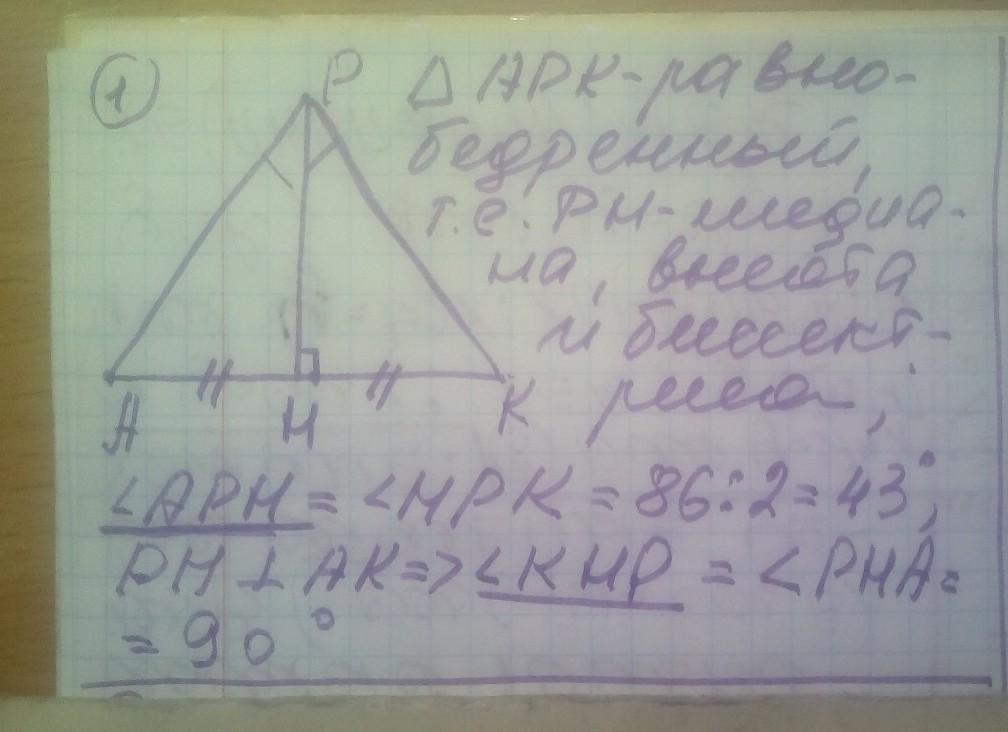 1
P
△ APK - равно-
бедренный,
т.е. PH - медиа-
на, высота
и биссект-
риса,
A H K
∠APH = ∠HPK = 86:2 = 43°;
PH ⊥ AK => ∠KHP = ∠PHA =
= 90°